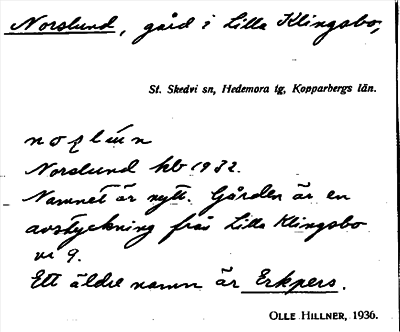 Norslund, gård i Lilla Klingsbo,
St. Skedvi sn, Hedemora tg, Kopparbergs län.
Norslund kb 1932.
Namnet är nytt. Gården är en
avstyckning från Lilla Klingsbo
nr 9.
Ett äldre namn är Erkpers.
OLLE HILLNER, 1936.